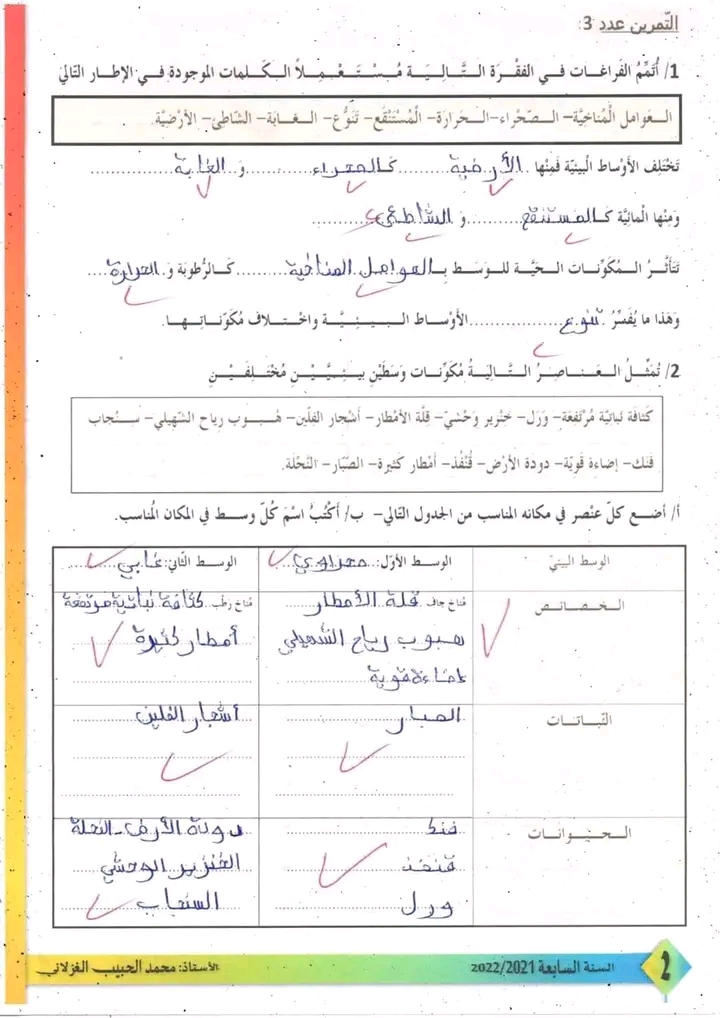 التّمرين عدد 3:
1/ أُتَمِّمُ الفَراغات في الفقْرة التّالِيَة مُسْتَعْمِلاً الكَلمات الموجودة في الإطار التّالي
العَوامل الْمُناخيَّة– الصّحْراء–الحَرارة– الْمُسْتَنْقَع– تَنَوُّع– الغابَة– الشّاطئ– الأرْضيَّة.
تَخْتَلِف الأوْساط البيئيّة فَمِنْها ..الأرضية.......كَـالصحراء.......وَ..الغابة..............
وَمِنْها الْمائِيَّة كَـالمستنقع..........وَ الشاطئ....................
تَتَأثّرُ المُكَوّنات الحَيَّة للوَسَط بِـالعوامل المناخية..........كَـالرُّطوبَة وَ..الحرارة....
وَهَذا ما يُفَسِّرُ ..تنوع....................الأوْساط البيئيَّة واخْتلاف مُكَوّناتِها.
2/ تُمَثِّلُ العَناصرُ التّاليَةُ مُكَوّنات وَسَطَيْنِ بيئيَّيْنِ مُخْتَلِفَيْنِ
كَثافَة نَباتيَّة مُرْتَفعَة– وَرَل– خنْزير وَحْشيّ– قلّة الأمْطار– أشْجار الفلّين– هُبوب رياح الشّهيلي– سنْجاب
فَنَك– إضاءة قَويّة– دودة الأرْض– قُنْفُذ– أمْطار كَثيرة– الصّبّار– النّحْلَة.
أ/ أضع كلّ عنْصر في مكانه المناسب من الجدول التّالي– ب/ أكْتُبُ اسْمَ كُلّ وسط في المكان المُناسب.
الوسط البيئيّ الوسط الأوّل:..صحراوي..... الوسط الثّاني: غابي......
الخصائص مُناخ جاف..قلة الأمطار مُناخ رطب..كثافة نباتية مرتفعة
هبوب رياح الشهيلي أمطار كثيرة
إضاءة قوية
النّباتات الصبار أشجار الفلين
الحيوانات فنك دودة الأرض-النحلة
قنفذ الخنزير الوحشي
ورل السنجاب
2 السنة السابعة 2022/2021 الأستاذ: محمد الحبيب الغزلاني